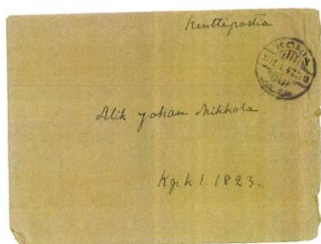 Kenttäpostia
Alik Johan Mikkola
Kpk 1. 1823.